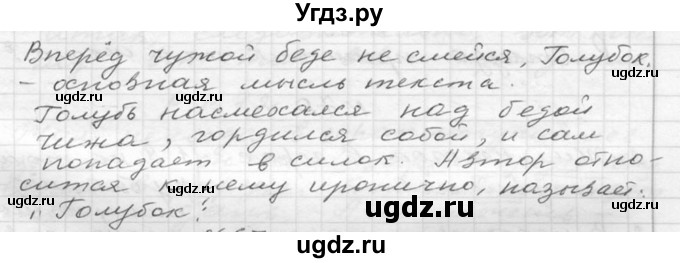 Угдз.ру
Вперёд чужой беде не смейся, Голубок.
- основная мысль текста.
Голубь насмехался над бедой
чижа, гордился собой, и сам
попадает в силок. Автор отно-
сится к нему иронично, называет:
"Голубок!
ugdz.ru
ugdz.ru
ugdz.ru
ugdz.ru
ugdz.ru
ugdz.ru
ugdz.ru
ugdz.ru
ugdz.ru